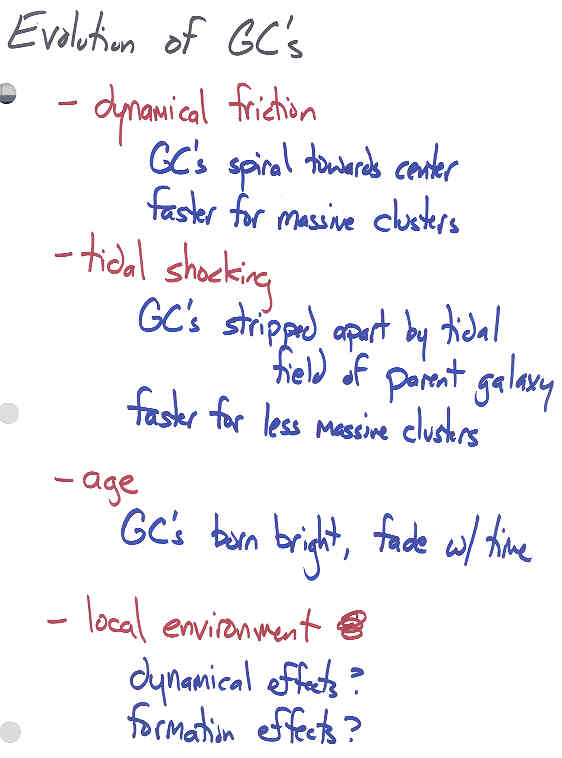 Evolution of GC's
- dynamical friction
GC's spiral towards center
faster for massive clusters
- tidal shocking
GC's stripped apart by tidal
field of parent galaxy
faster for less massive clusters
- age
GC's born bright, fade w/ time
- local environment
dynamical effects?
formation effects?